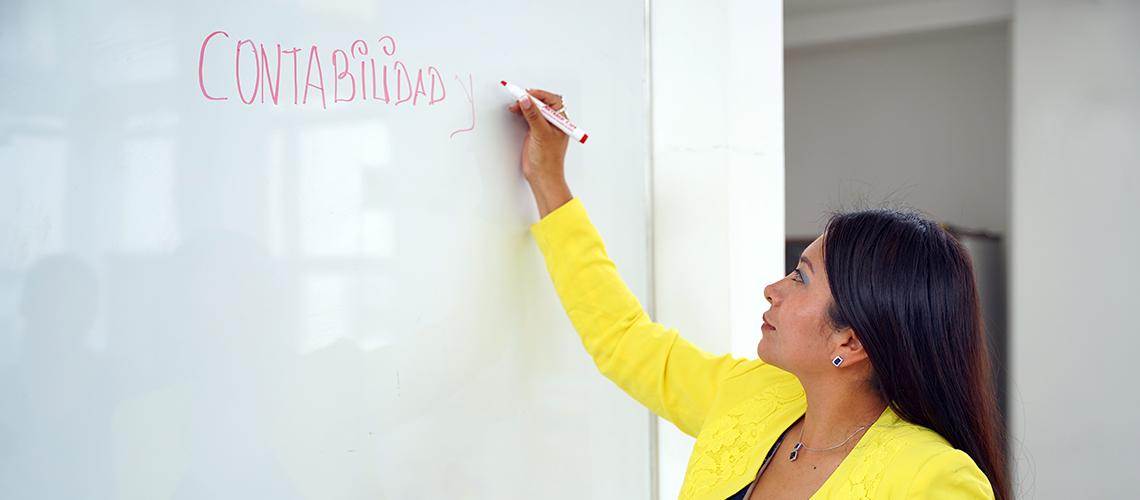 CONTABiLiDAD y